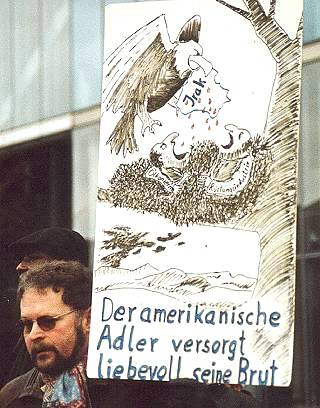 Irak
Rüstungsindustrie
Der amerikanische
Adler versorgt
liebevoll seine Brut